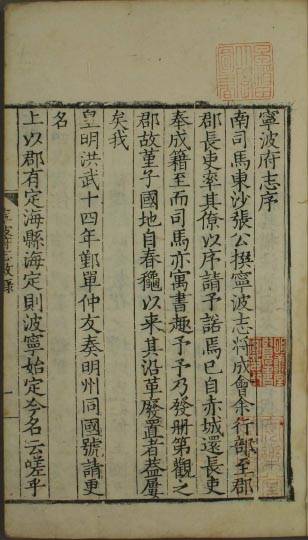 寧波府志序
南司馬東沙張公撰寧波志將成會余行部至郡
郡長吏率其僚以序請予諾焉已自赤城還長吏
奉成籍至而司馬亦寓書趣予予乃發册第觀之
郡故堇子國地自春穐以來其沿革廢置者葢屢
矣我
皇明洪武十四年鄞單仲友奏明州同國號請更
名
上以郡有定海縣海定則波寧始定今名云嗟乎